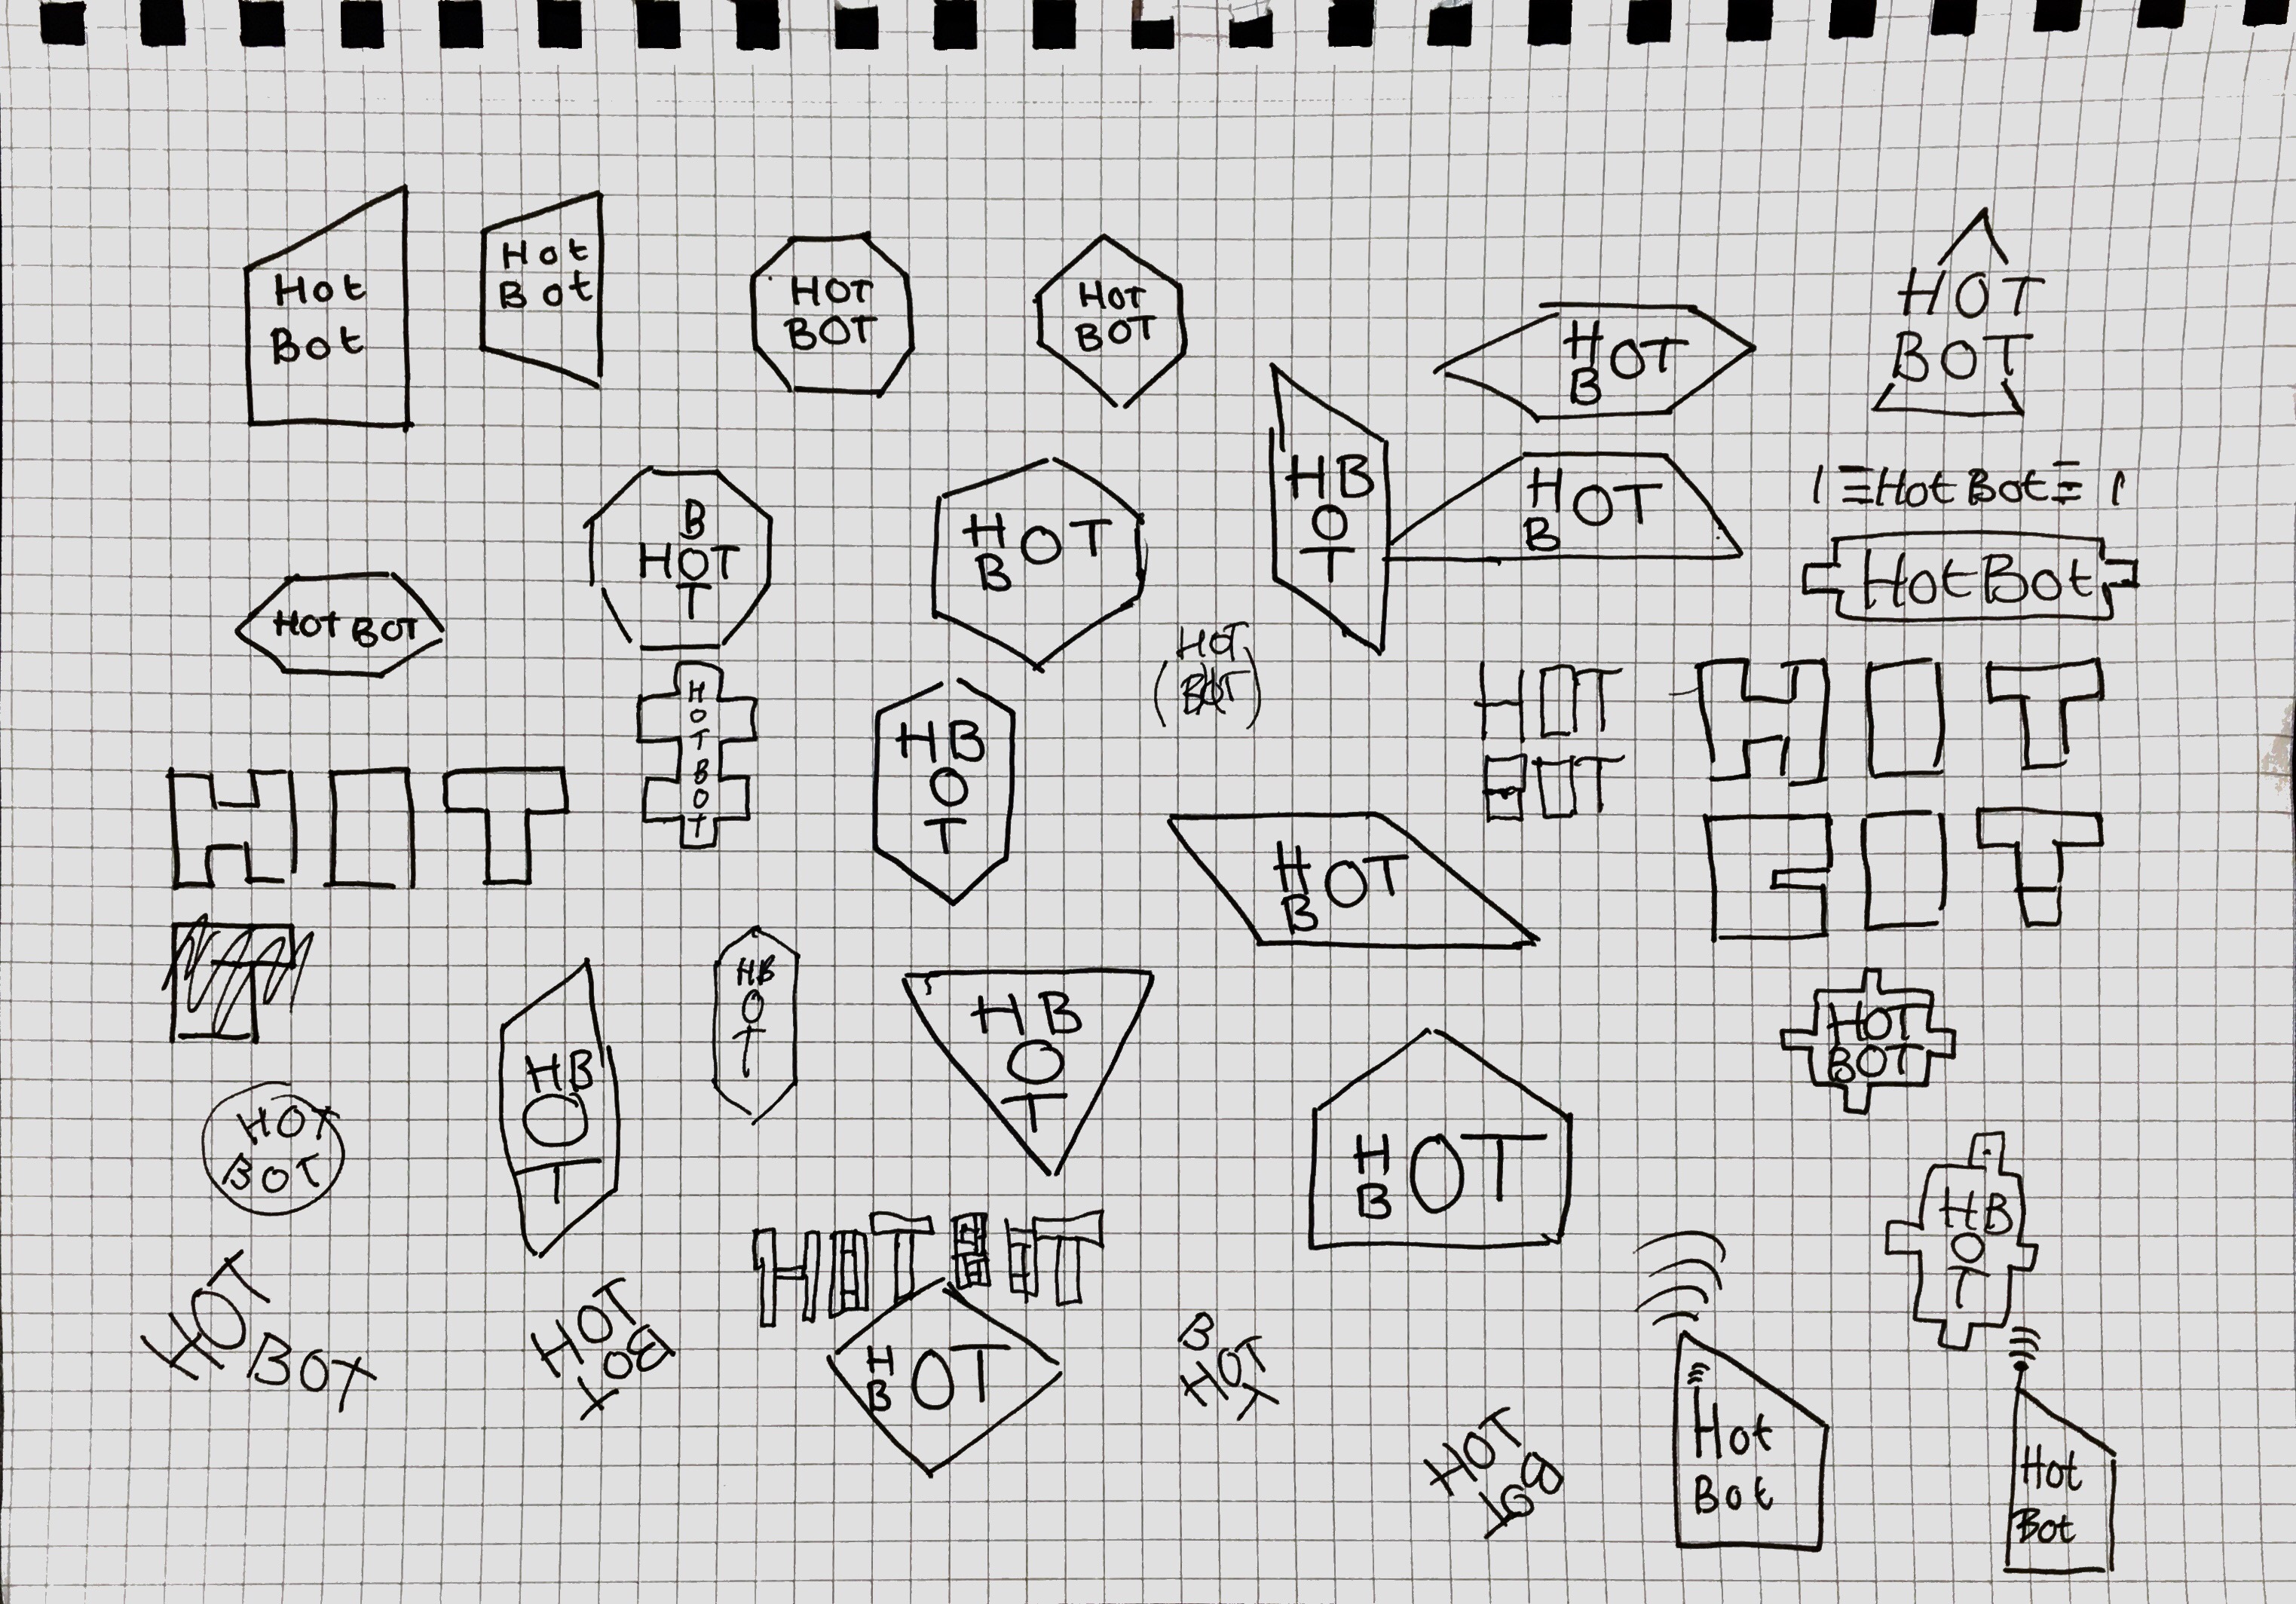 Hot
Bot
Hot
Bot
HOT
BOT
HOT
BOT
H
B OT
HOT
BOT
HOT BOT
B
HOT
T
H
B OT
HB
O
T
H
B OT
Hot Bot
HotBot
H
O
T
B
O
T
HB
O
T
HOT
HOT
BOT
HOT
BOT
HOT
H
B OT
HOT
BOT
HB
O
T
HB
O
T
HB
O
T
H
B OT
HOT
BOT
HB
O
T
HOT
BOT
HOT
BOT
HOT BOT
H
B OT
B
HOT
T
HOT
BOT
Hot
Bot
Hot
Bot